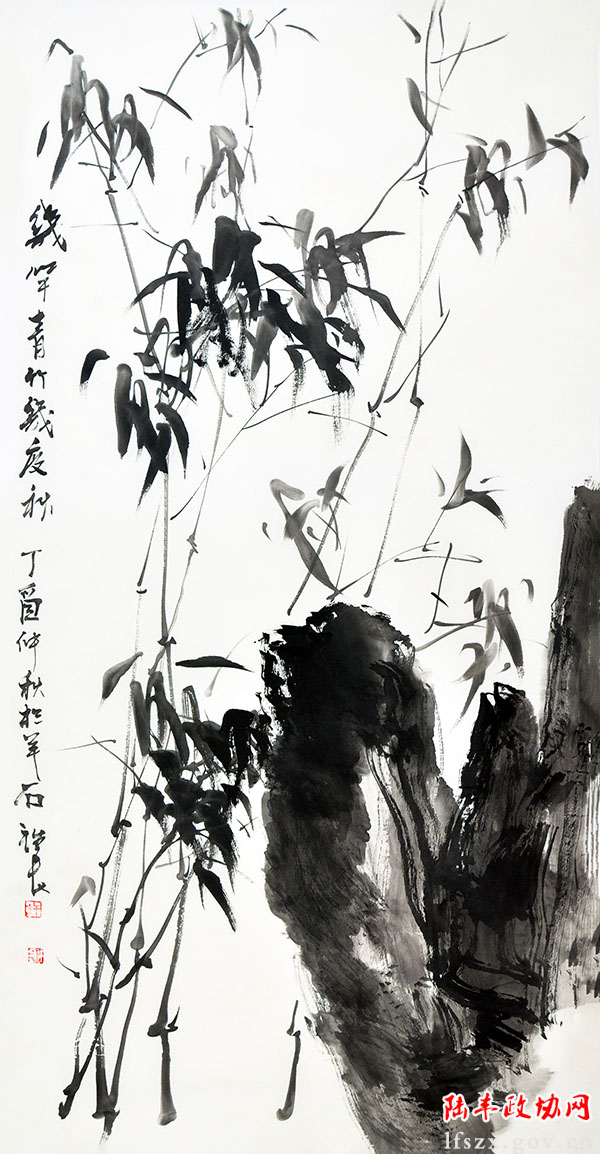 幾竿青竹幾度秋 丁酉仲秋於羊石
陆丰政协网
lfszx.gov.cn